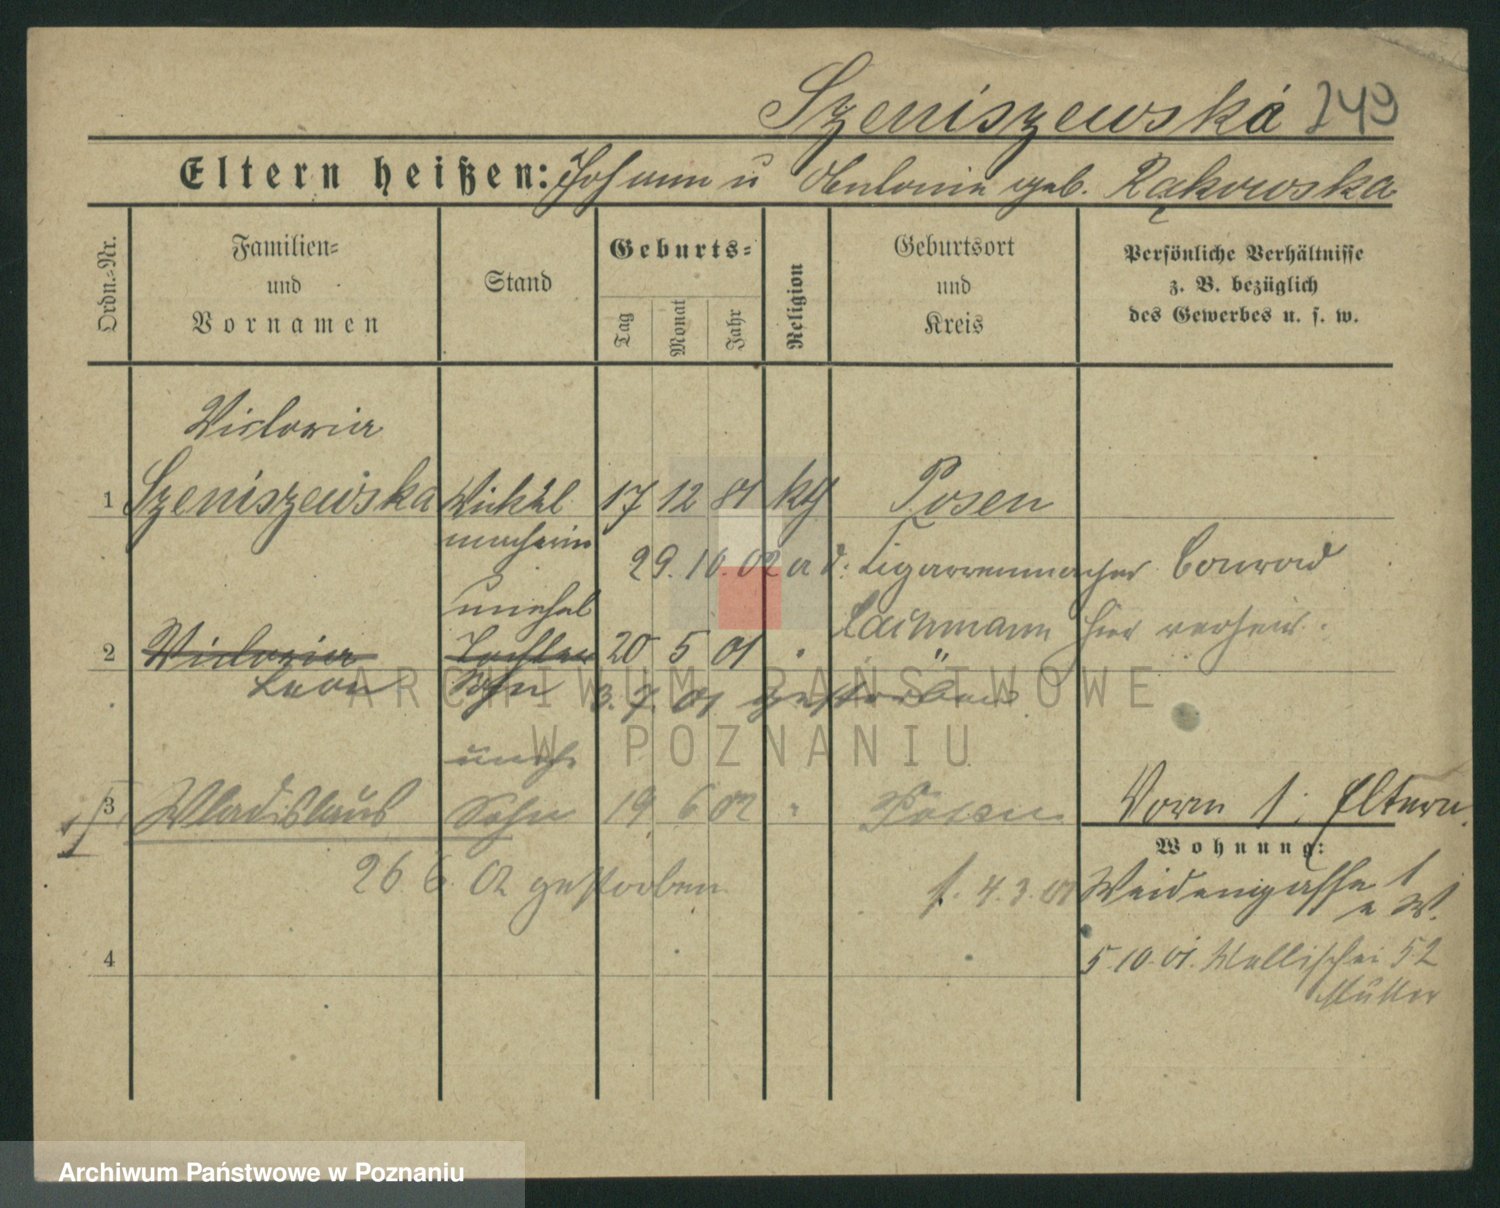 Szeniszewska 249
Eltern heißen: Johann u Antonie geb. Rąkowska
Ordn.-Nr.
Familien-
und
Vornamen
Stand
Geburts-
Tag
Monat
Jahr
Religion
Geburtsort
und
Kreis
Persönliche Verhältnisse
z. B. bezüglich
des Gewerbes u. s. w.
Victoria
1 Szeniszewska Wickel 17 12 81 kth Posen
macherin
29.10.02 a d: Cigarrenmacher Conrad
unehel Lachmann hier verheir.
2 Victoria Tochter 20 5 01 " "
Leon Sohn 3. 7. 01 gestorben
uneh.
3 Wladislaus Sohn 19 6 02 " Posen
Vorm 1: Eltern
26 6. 02 gestorben
Wohnung:
f. 4.3.01 Weidengasse 1
4
5.10.01. Wallischei 52
Mutter
ARCHIWUM PAŃSTWOWE
W POZNANIU
Archiwum Państwowe w Poznaniu